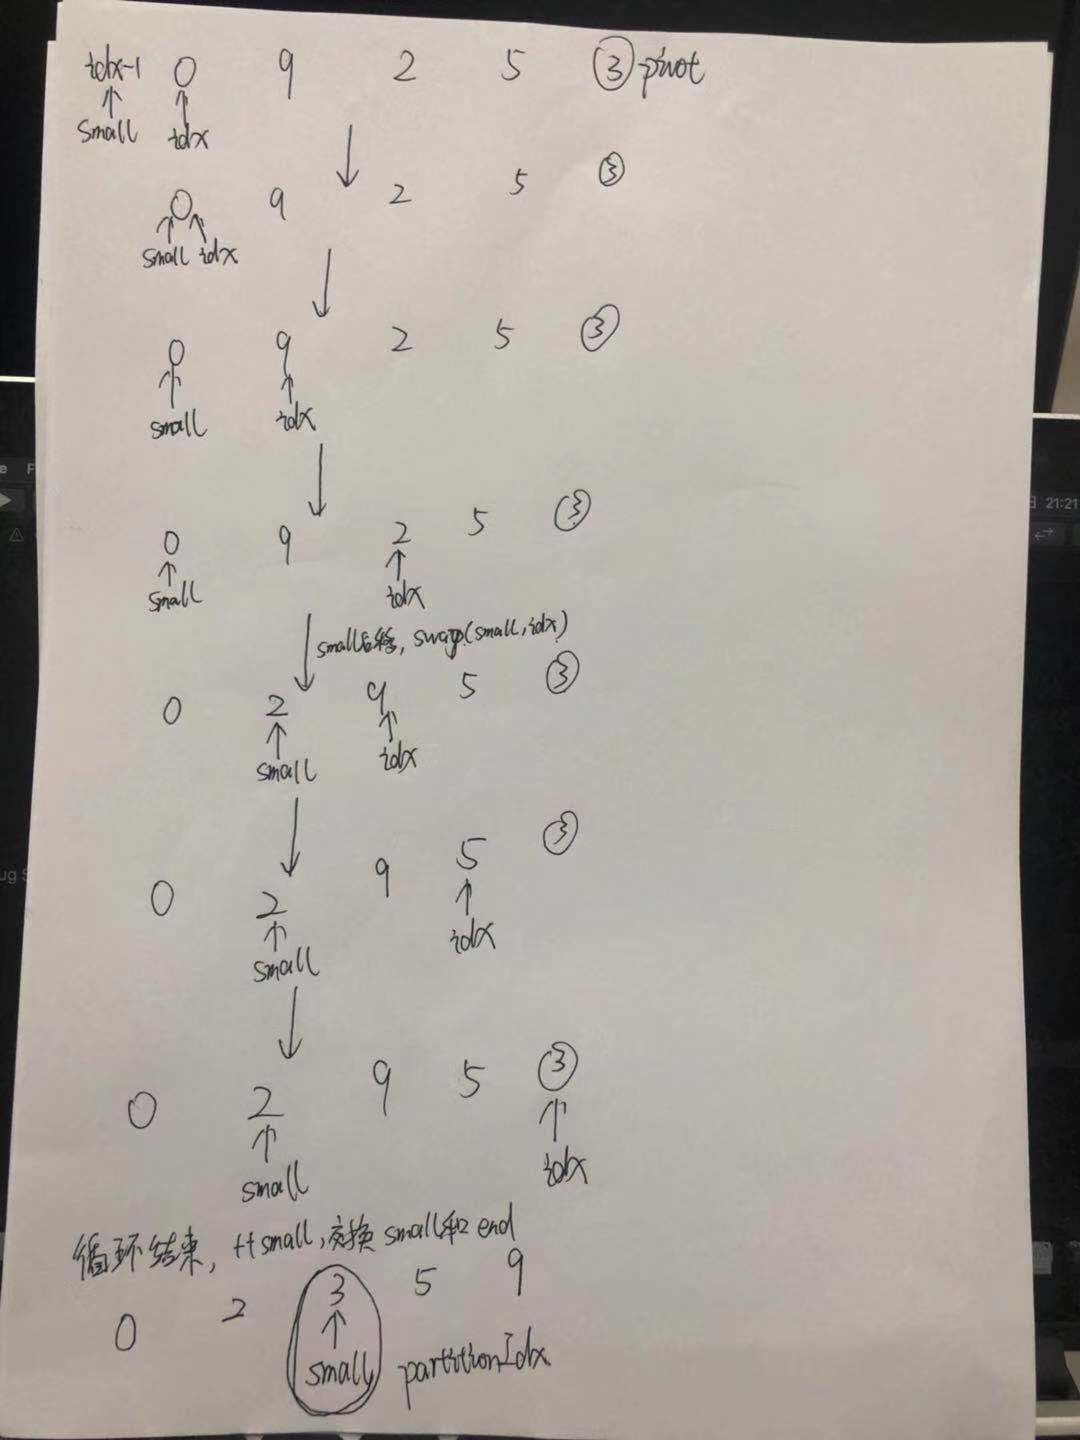 idx-1 0 9 2 5 3 pivot
small idx
0 9 2 5 3
small idx
0 9 2 5 3
small idx
21:21
0 9 2 5 3
small idx
small后移, swap(small, idx)
0 2 9 5 3
small idx
0 2 9 5 3
small idx
0 2 9 5 3
small idx
循环结束, ++small, 交换small和end
0 2 3 5 9
small partitionIdx